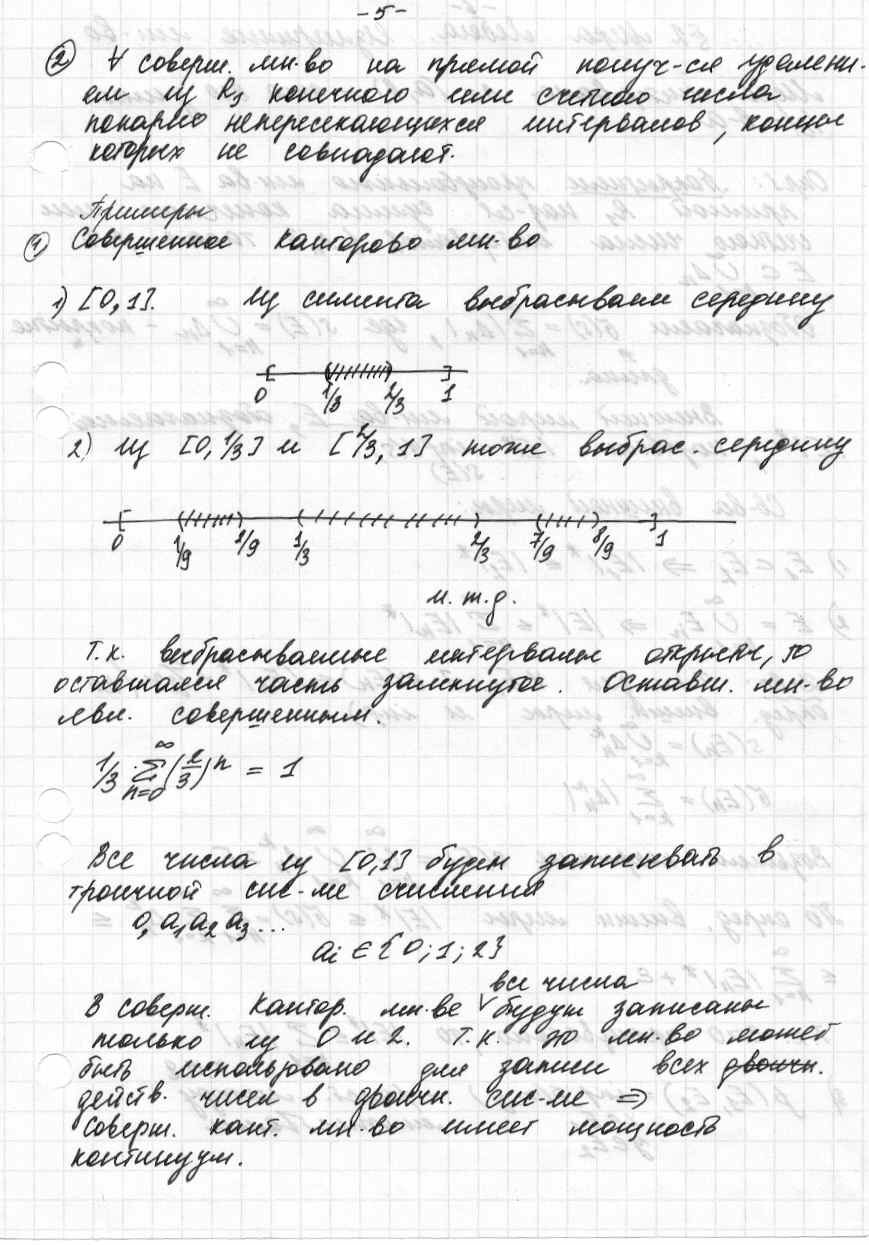 -5-
② ∀ соверш. мн-во на прямой получ-ся удалени-
ем из R₁ конечного или счетного числа
попарно непересекающихся интервалов, концы
которых не совпадают.
Примеры
① Совершенное канторово мн-во
1) [0,1]. Из сегмента выбрасываем середину
0 1/3 2/3 1
2) Из [0,1/3] и [2/3,1] тоже выбрас. середину
0 1/9 2/9 1/3 2/3 7/9 8/9 1
и.т.д.
Т.к. выбрасываемые интервалы открыты, то
оставшаяся часть замкнутое. Оставш. мн-во
явл. совершенным.
1/3 · ∑_{n=0}^{∞} (2/3)^n = 1
Все числа из [0,1] будем записывать в
троичной сис-ме счисления
0, a₁ a₂ a₃ ...
aᵢ ∈ {0; 1; 2}
все числа
В соверш. кантор. мн-ве ∨ будут записаны
только из 0 и 2. Т.к. это мн-во может
быть использовано для записи всех двоичн.
действ. чисел в двоичн. сис-ме ⇒
соверш. кант. мн-во имеет мощность
континуум.